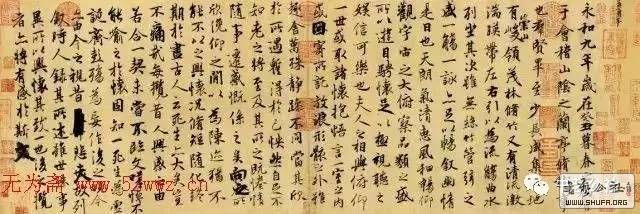 永和九年歲在癸丑暮春之初會
于會稽山陰之蘭亭脩禊事
也群賢畢至少長咸集此地
有崇山峻領茂林脩竹又有清流激
湍暎帶左右引以為流觴曲水
列坐其次雖無絲竹管弦之
盛一觴一詠亦足以暢敘幽情
是日也天朗氣清惠風和暢仰
觀宇宙之大俯察品類之盛
所以遊目騁懷足以極視聽之
娛信可樂也夫人之相與俯仰
一世或取諸懷抱悟言一室之內
或因寄所託放浪形骸之外雖
趣舍萬殊靜躁不同當其欣
於所遇蹔得於己怏然自足不
知老之將至及其所之既惓情
隨事遷感慨係之矣向之所欣
俛仰之間以為陳迹猶不
能不以之興懷況脩短隨化終
期於盡古人云死生亦大矣豈
不痛哉每攬昔人興感之由
若合一契未嘗不臨文嗟悼不
能喻之於懷固知一死生為虛
誕齊彭殤為妄作後之視今
亦由今之視昔悲夫故列
敘時人錄其所述雖世殊事
異所以興懷其致一也後之攬
者亦將有感於斯文
无为斋 www.52wwz.cn
WWW.SHUFA.ORG